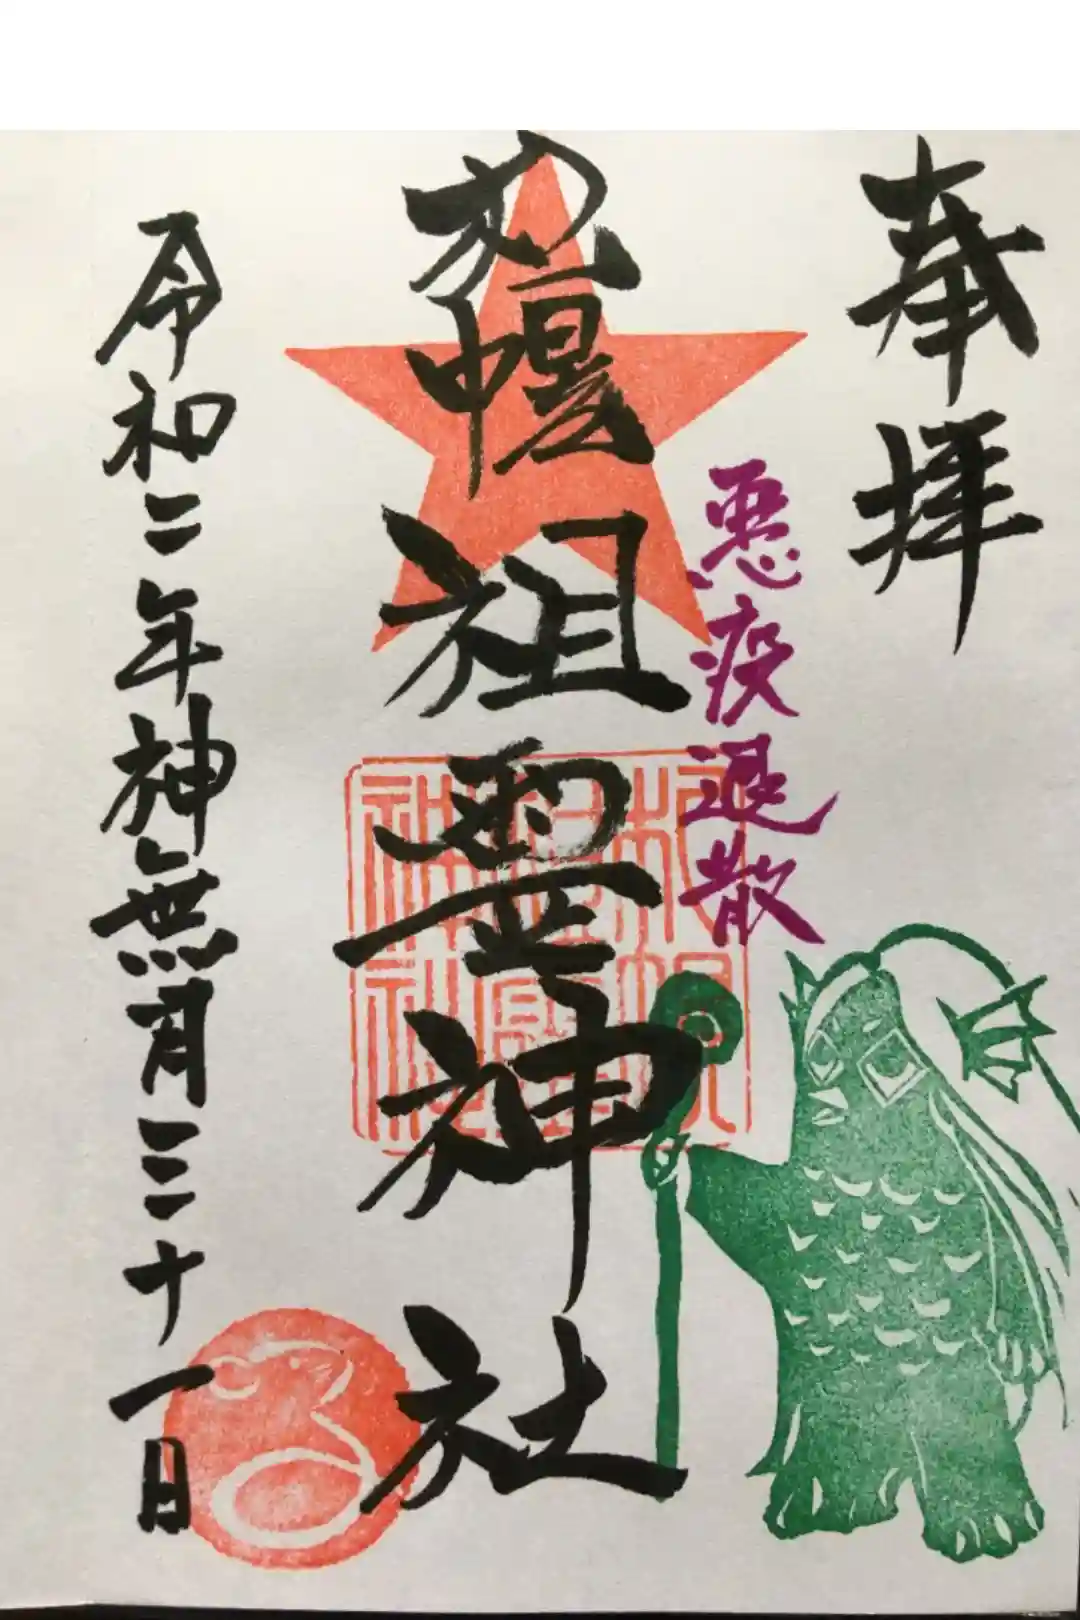 奉拝
悪疫退散
札幌祖霊神社
令和二年神無月三十一日